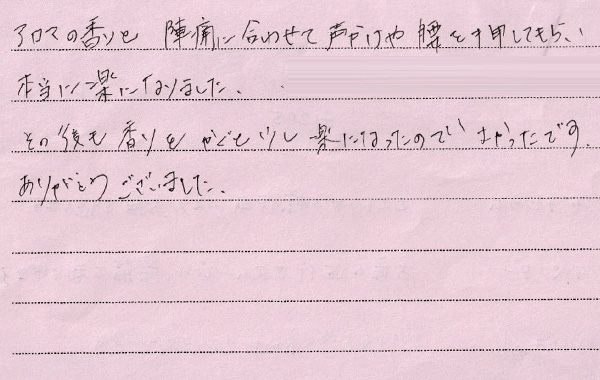 アロマの香りと 陣痛に合わせて声かけや腰を押してもらい
本当に楽になりました。
その後も香りをかぐと少し楽になったのでよかったです。
ありがとうございました。